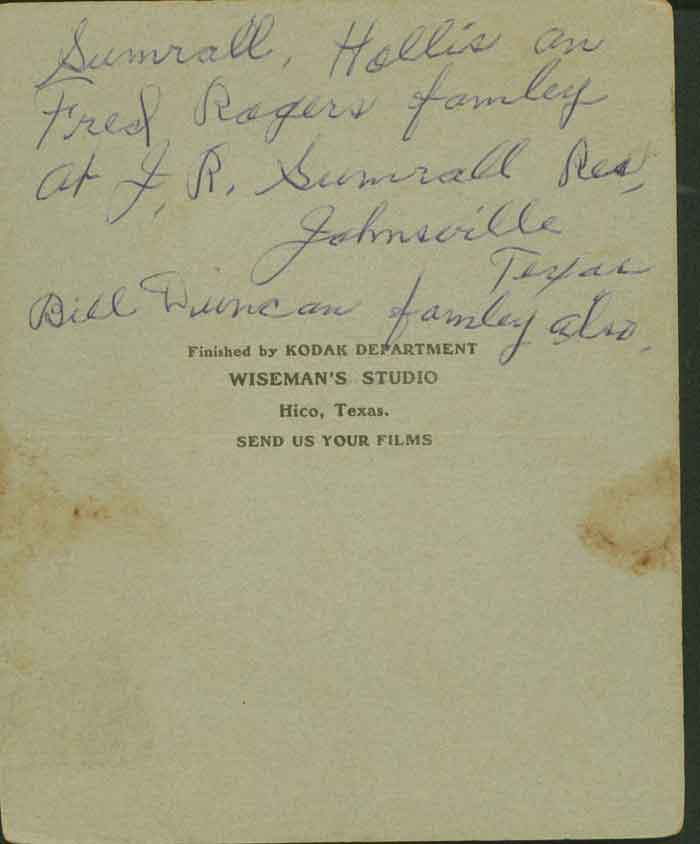 Sumrall, Hollis an
Fred Rogers famley
at J. R. Sumrall Res,
Johnsville
Texas
Bill Duncan famley also.
Finished by KODAK DEPARTMENT
WISEMAN'S STUDIO
Hico, Texas.
SEND US YOUR FILMS